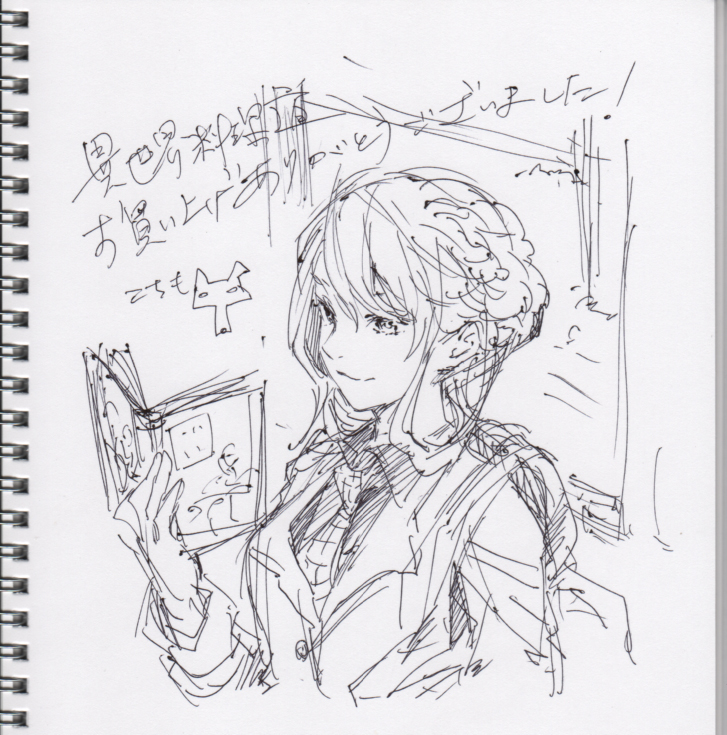 異世界料理道
お買い上げありがとうございました！
こちも